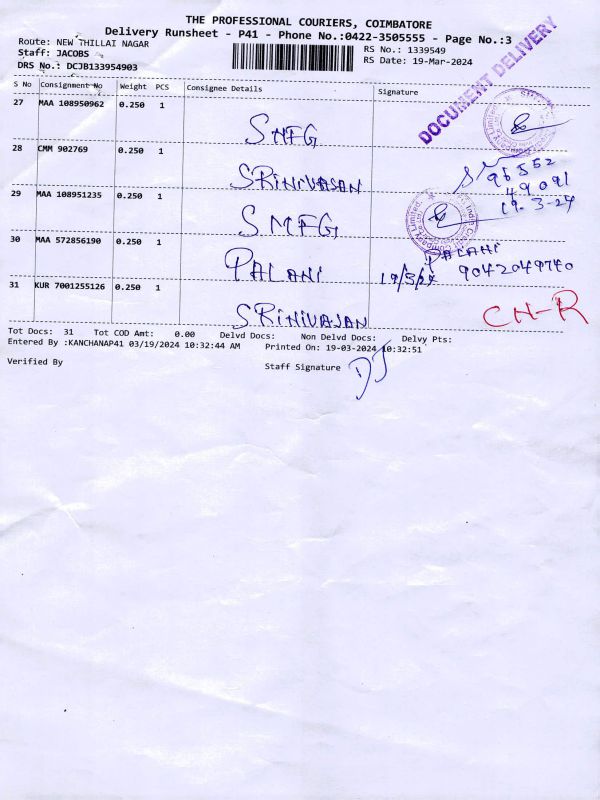 THE PROFESSIONAL COURIERS, COIMBATORE
Delivery Runsheet - P41 - Phone No.:0422-3505555 - Page No.:3
Route: NEW THILLAI NAGAR
RS No.: 1339549
Staff: JACOBS
RS Date: 19-Mar-2024
DRS No.: DCJB133954903
DOCUMENT DELIVERY
S No Consignment No Weight PCS Consignee Details Signature
27 MAA 108950962 0.250 1
SMFG
28 CMM 902769 0.250 1
SRINIVASAN
96552
49091
19.3-24
29 MAA 108951235 0.250 1
SMFG
30 MAA 572856190 0.250 1
PALANI 19/3/24 PALANI
9042049740
31 KUR 7001255126 0.250 1
SRINIVASAN CH-R
Tot Docs: 31 Tot COD Amt: 0.00 Delvd Docs: Non Delvd Docs: Delvy Pts:
Entered By :KANCHANAP41 03/19/2024 10:32:44 AM Printed On: 19-03-2024 10:32:51
Verified By Staff Signature DJ